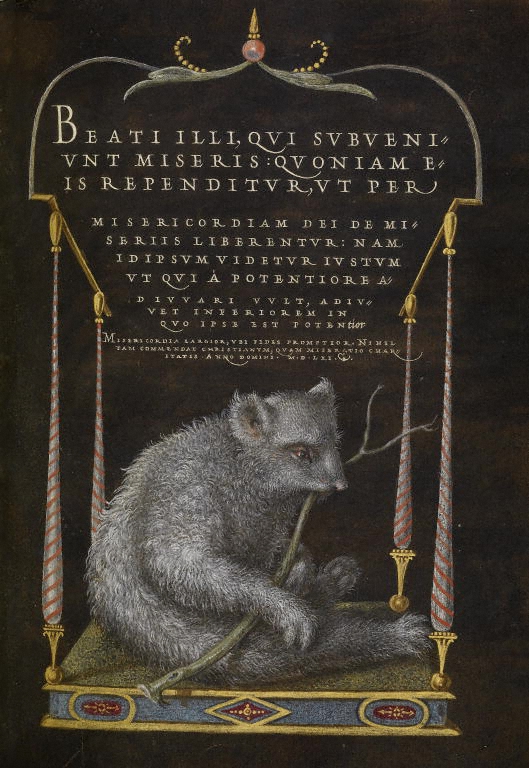 BEATI ILLI, QVI SVBVENI〃
VNT MISERIS: QVONIAM E〃
IS REPENDITVR, VT PER
MISERICORDIAM DEI DE MI〃
SERIIS LIBERENTVR: NAM
IDIPSVM VIDETVR IVSTVM
VT QVI À POTENTIORE A〃
DIVVARI VVLT, ADIV〃
VET INFERIOREM IN
QVO IPSE EST POTENtior
MISERICORDIA LARGIOR, VBI FIDES PROMPTIOR. NIHIL
TAM COMMENDAT CHRISTIANVM, QVAM MISERATIO CHARI
TATIS. ANNO DOMINI. M.D.LXI.